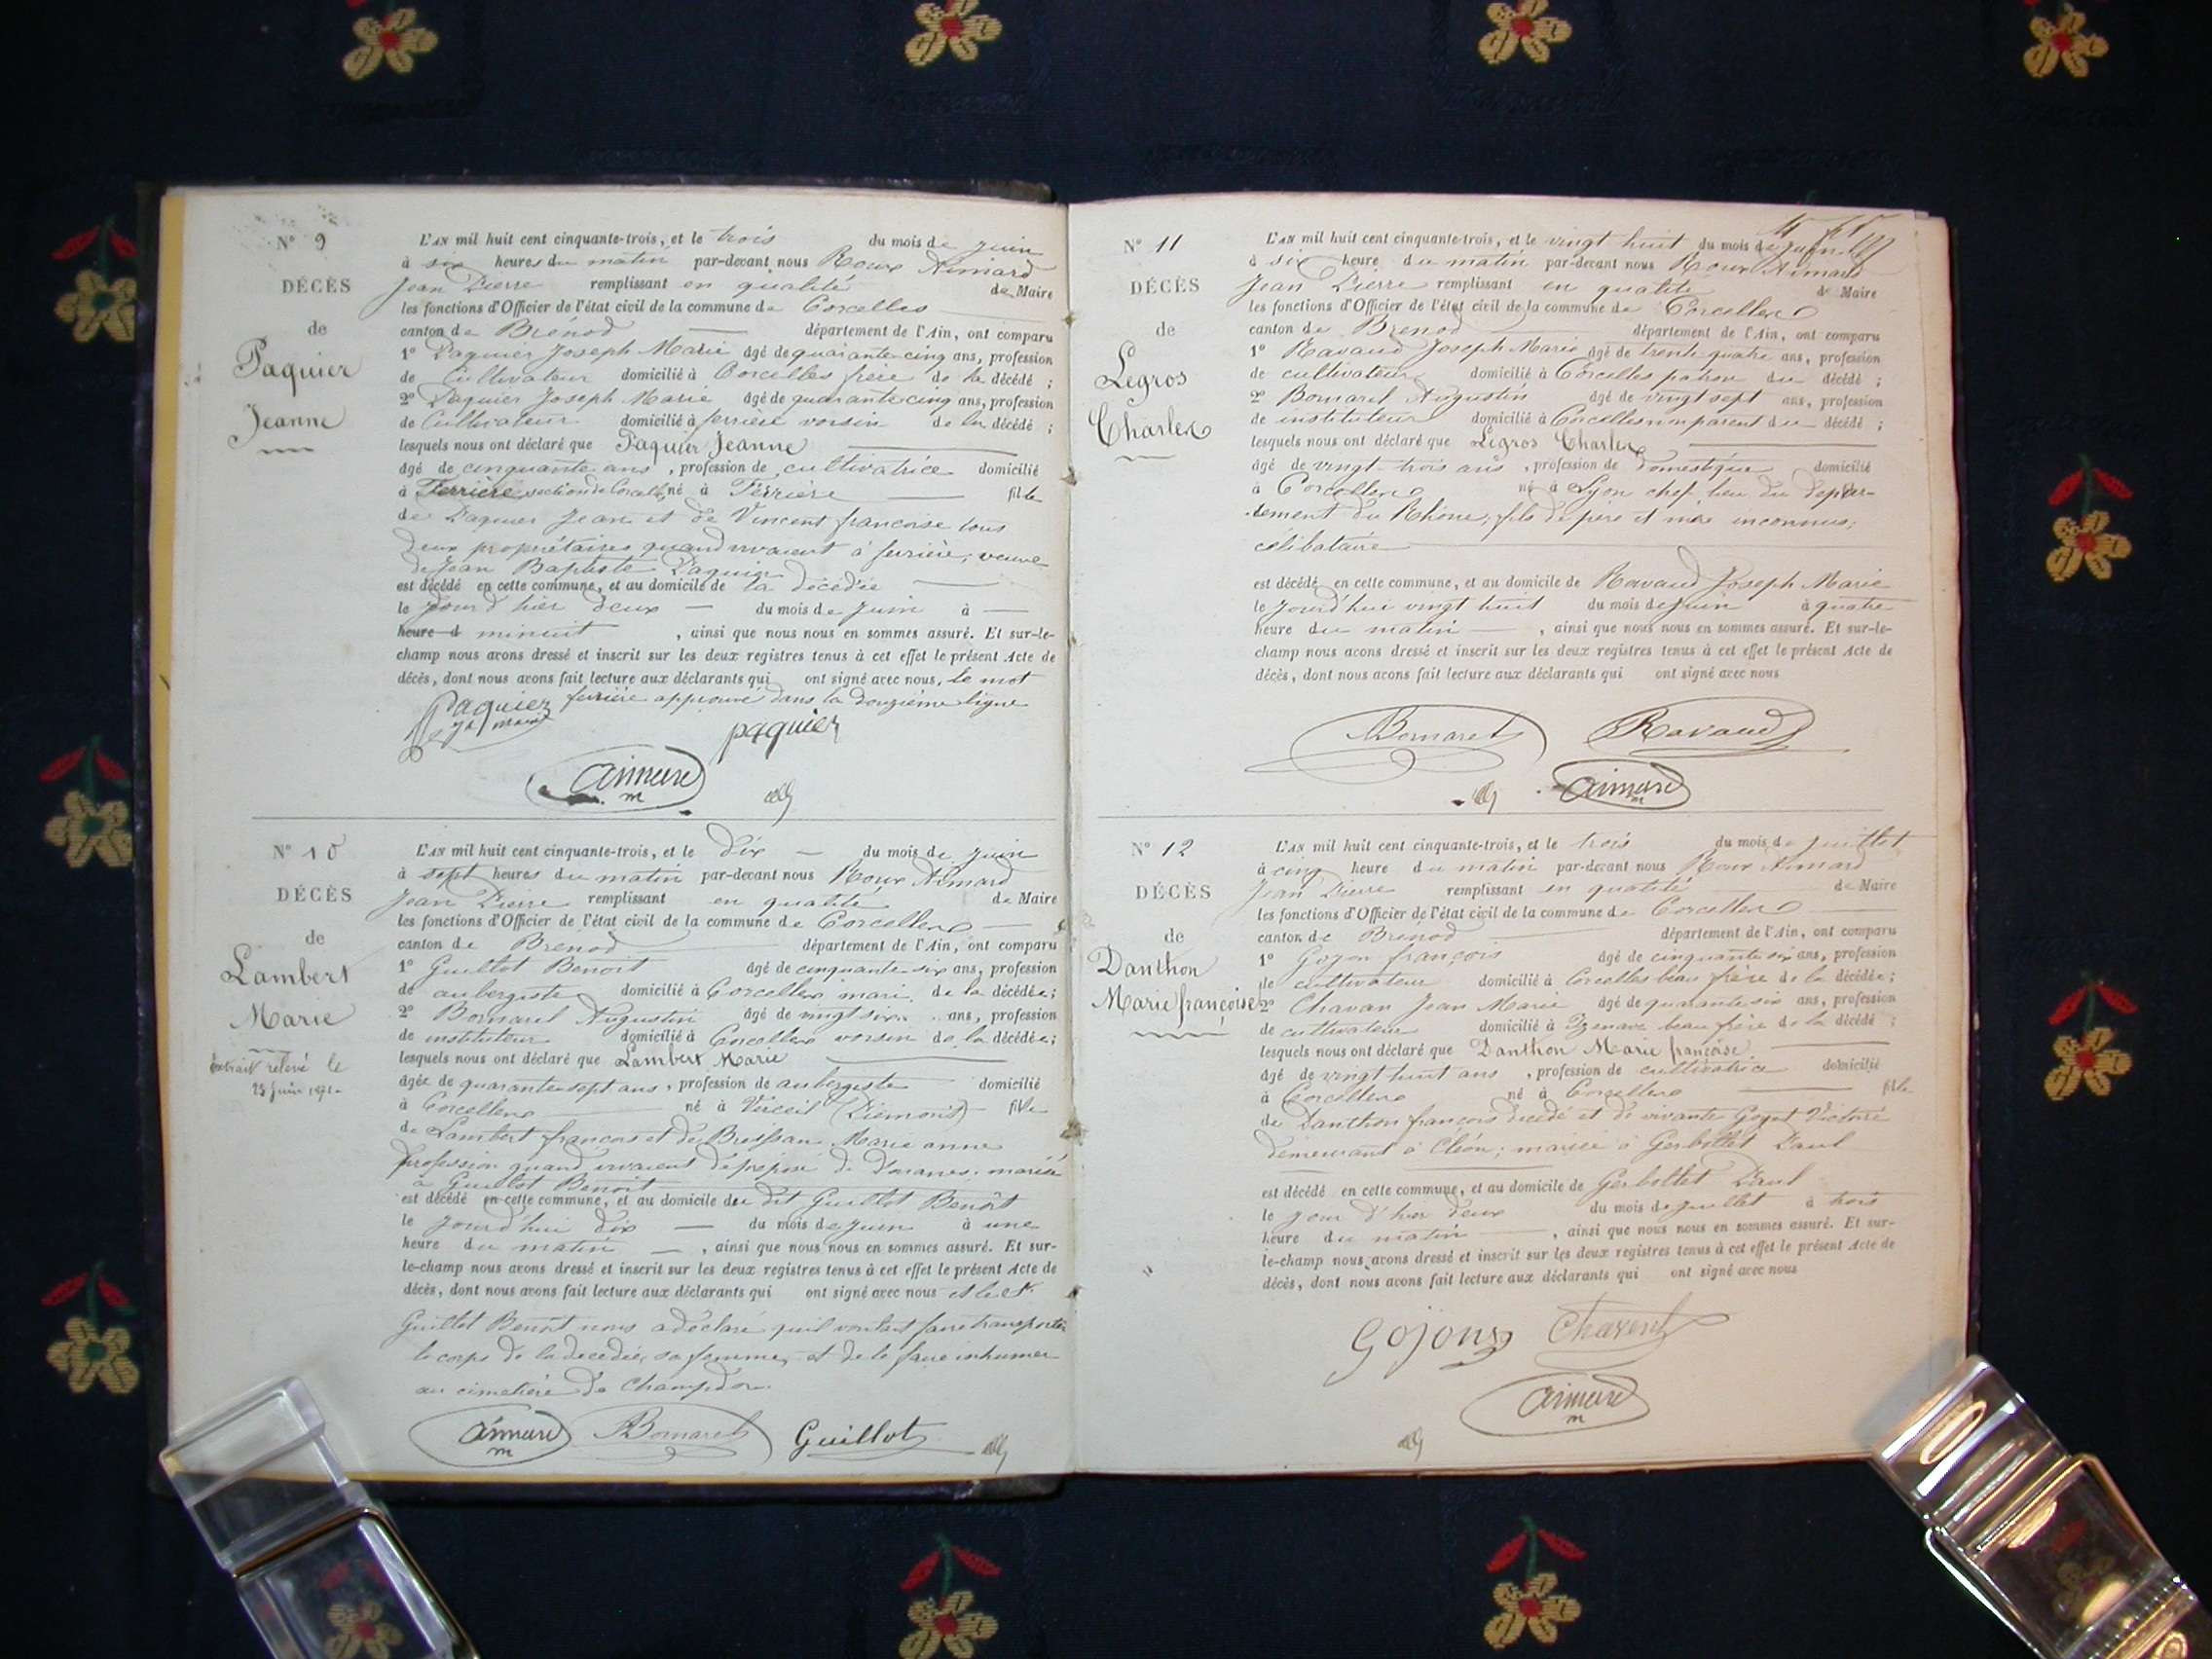 N° 9
DÉCÈS
de
Paquier
Jeanne
L'AN mil huit cent cinquante-trois, et le trois du mois de juin
à six heures du matin par-devant nous Roux Aimard
Jean Pierre remplissant en qualité de Maire
les fonctions d'Officier de l'état civil de la commune de Corcelles
canton de Brénod département de l'Ain, ont comparu
1° Paquier Joseph Marie âgé de quarante cinq ans, profession
de Cultivateur domicilié à Corcelles frère de la décédé ;
2° Paquier Joseph Marie âgé de quarante cinq ans, profession
de Cultivateur domicilié à ferrière voisin de la décédé ;
lesquels nous ont déclaré que Paquier Jeanne
âgé de cinquante ans, profession de cultivatrice domicilié
à Ferrière section de Corcelles né à Férrière fille
de Paquier Jean et de Vincent francoise tous
deux propriétaires quand vivaient à ferrière, veuve
de Jean Baptiste Paquier
est décédé en cette commune, et au domicile de la décédée
le jourd'hier deux du mois de Juin à
heure d minuit, ainsi que nous nous en sommes assuré. Et sur-le-
champ nous avons dressé et inscrit sur les deux registres tenus à cet effet le présent Acte de
décès, dont nous avons fait lecture aux déclarants qui ont signé avec nous, le mot
ferrière approuvé dans la douzième ligne
Paquier
paquier
aimard
m
N° 10
DÉCÈS
de
Lambert
Marie
Extrait relevé le
L'AN mil huit cent cinquante-trois, et le dix du mois de juin
à sept heures du matin par-devant nous Roux Aimard
Jean Pierre remplissant en qualité de Maire
les fonctions d'Officier de l'état civil de la commune de Corcelles
canton de Brénod département de l'Ain, ont comparu
1° Guillot Benoit âgé de cinquante-six ans, profession
de aubergiste domicilié à Corcelles mari de la décédée ;
2° Bornarel Augustin âgé de vingt six ans, profession
de instituteur domicilié à Corcelles voisin de la décédée ;
lesquels nous ont déclaré que Lambert Marie
âgée de quarante sept ans, profession de aubergiste domicilié
à Corcelles né à Verceil (Piémont) fille
de Lambert francois et de Marie anne
profession quand vivaient préposé de Douanes. mariée
à Guillot Benoit
est décédé en cette commune, et au domicile du dit Guillot Benoit
le jourd'hui dix du mois de juin à une
heure du matin, ainsi que nous nous en sommes assuré. Et sur-
le-champ nous avons dressé et inscrit sur les deux registres tenus à cet effet le présent Acte de
décès, dont nous avons fait lecture aux déclarants qui ont signé avec nous
Guillot Benoit nous a déclaré qu'il voulait faire transporter
le corps de la décédée, sa femme, et de le faire inhumer
au cimetière de Champdor.
aimard
m
Bornarel
Guillot
N° 11
DÉCÈS
de
Legros
Charles
L'AN mil huit cent cinquante-trois, et le vingt huit du mois de juin
à six heure du matin par-devant nous Roux Aimard
Jean Pierre remplissant en qualité de Maire
les fonctions d'Officier de l'état civil de la commune de Corcelles
canton de Brénod département de l'Ain, ont comparu
1° Ravaud Joseph Marie âgé de trente quatre ans, profession
de cultivateur domicilié à Corcelles patron du décédé ;
2° Bornarel Augustin âgé de vingt sept ans, profession
de instituteur domicilié à Corcelles non parent du décédé ;
lesquels nous ont déclaré que Legros Charles
âgé de vingt-trois ans, profession de domestique domicilié
à Corcelles né à Lyon chef lieu du dépar-
-tement du Rhône, fils de père et mère inconnus,
célibataire
est décédé en cette commune, et au domicile de Ravaud Joseph Marie
le jourd'hui vingt huit du mois de juin à quatre
heure du matin, ainsi que nous nous en sommes assuré. Et sur-le-
champ nous avons dressé et inscrit sur les deux registres tenus à cet effet le présent Acte de
décès, dont nous avons fait lecture aux déclarants qui ont signé avec nous
Bornarel
Ravaud
aimard
m
N° 12
DÉCÈS
de
Danthon
Marie françoise
L'AN mil huit cent cinquante-trois, et le trois du mois de juillet
à cinq heure du matin par-devant nous Roux Aimard
Jean Pierre remplissant en qualité de Maire
les fonctions d'Officier de l'état civil de la commune de Corcelles
canton de Brénod département de l'Ain, ont comparu
1° Gojon françois âgé de cinquante six ans, profession
de cultivateur domicilié à Corcelles beau frère de la décédée ;
2° Chavan Jean Marie âgé de quarante six ans, profession
de cultivateur domicilié à Izenave beau frère de la décédé ;
lesquels nous ont déclaré que Danthon Marie françoise
âgé de vingt huit ans, profession de cultivatrice domicilié
à Corcelles né à Corcelles fille
de Danthon françois décédé et de vivante Victoire
demeurant à Cléon ; mariée à Gerbollet Paul
est décédé en cette commune, et au domicile de Gerbollet Paul
le jour d'hier deux du mois de juillet à trois
heure du matin, ainsi que nous nous en sommes assuré. Et sur-
le-champ nous avons dressé et inscrit sur les deux registres tenus à cet effet le présent Acte de
décès, dont nous avons fait lecture aux déclarants qui ont signé avec nous
Gojon
Chavent
aimard
m